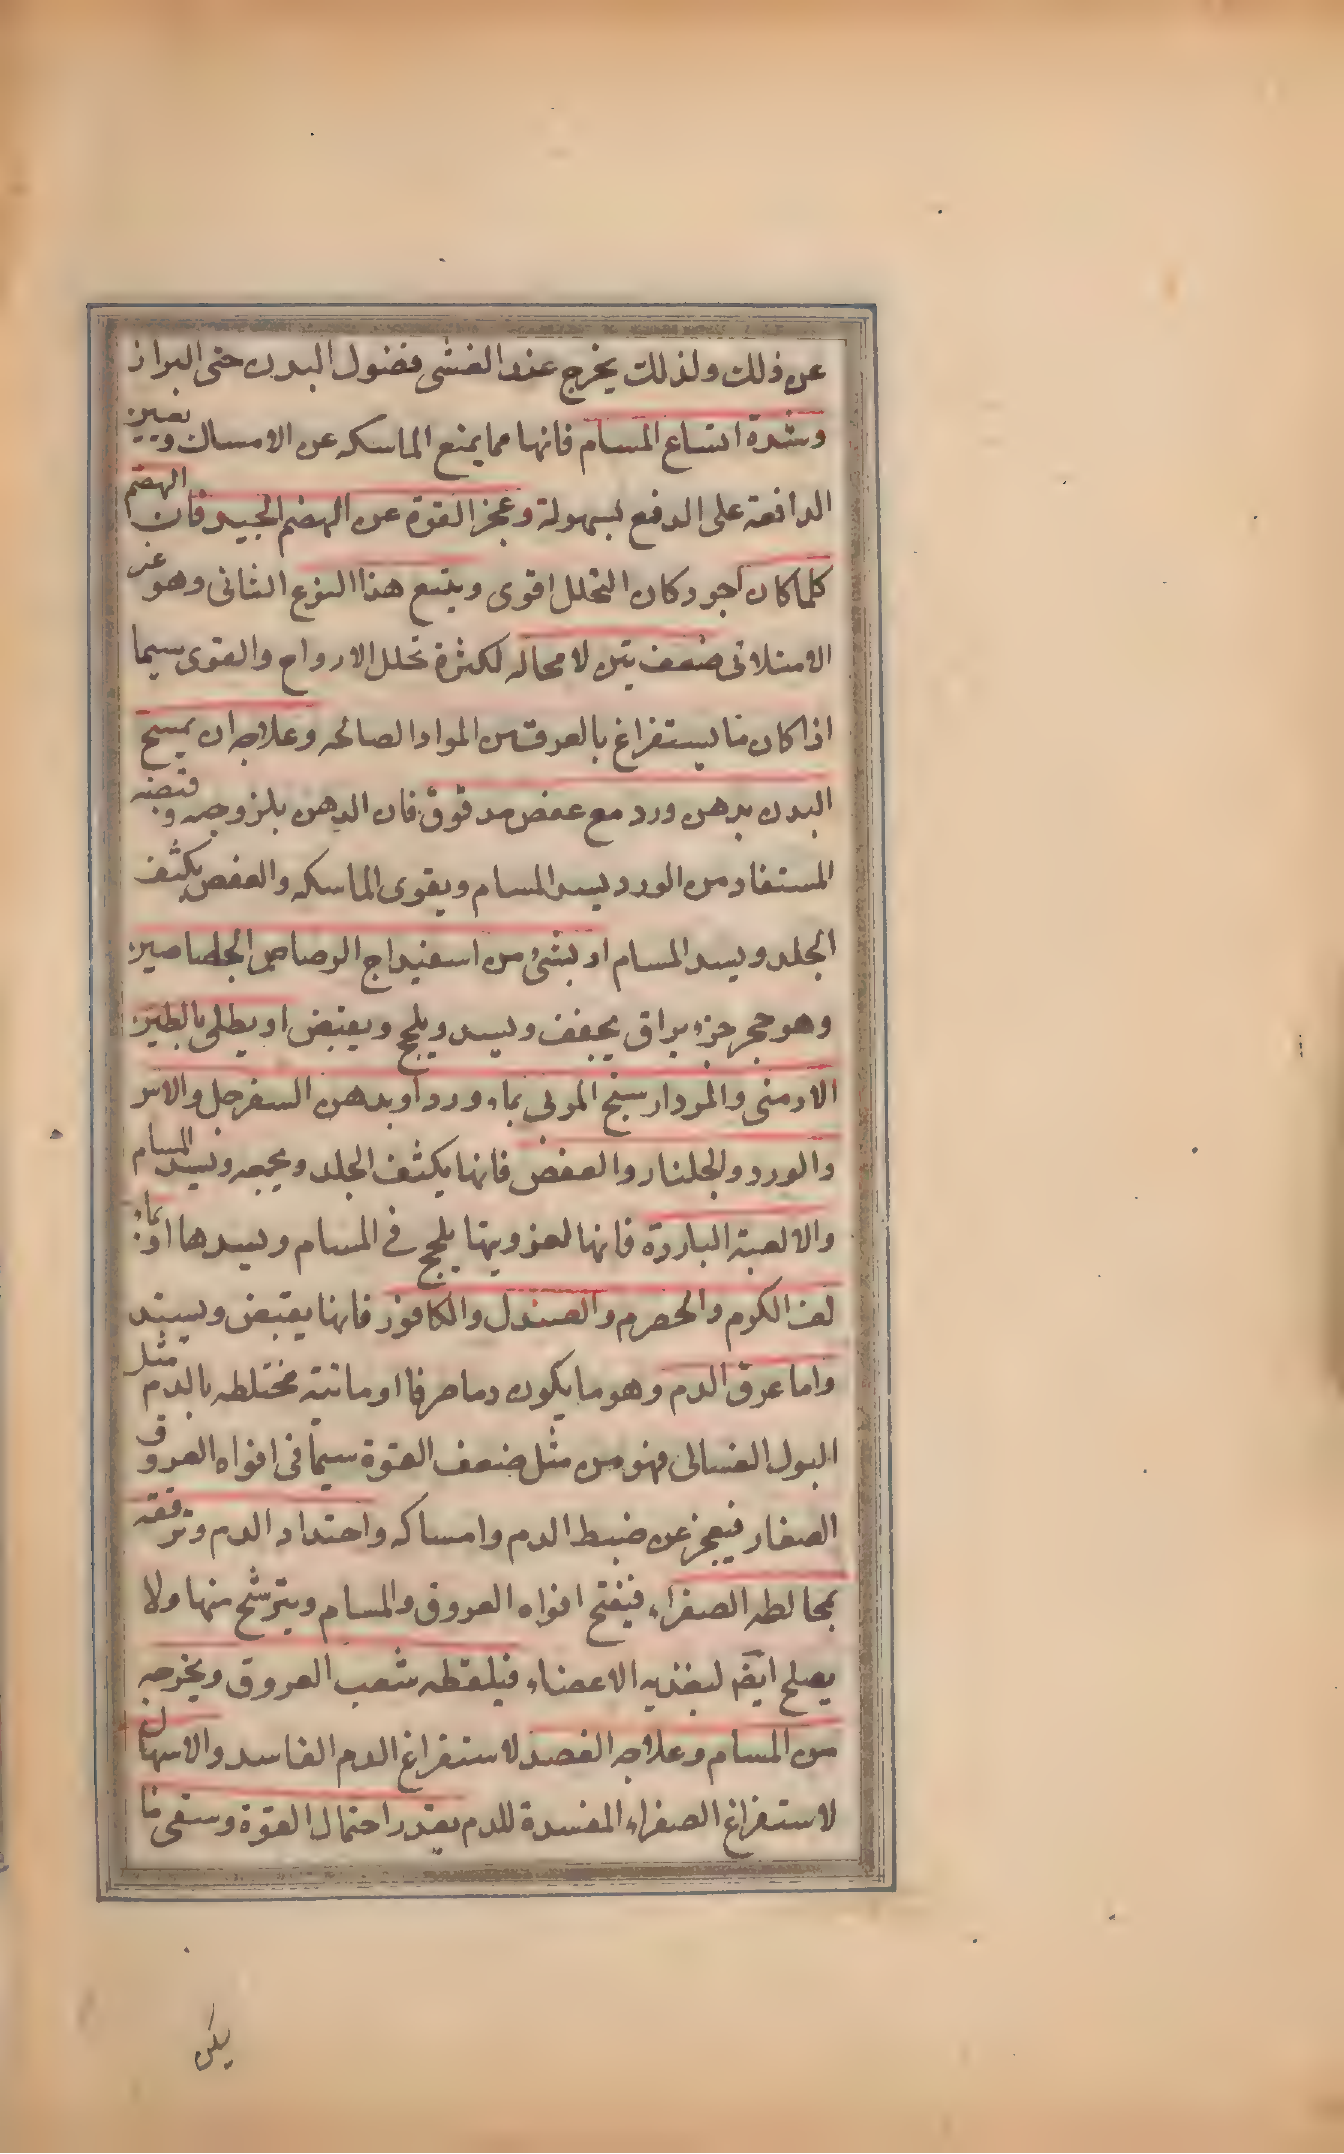 عن ذلك ولذلك يخرج عند الغشى فضول البدن حتى البراز
وشدة اتساع المسام فانها مما يمنع الماسكه عن الامساك ويعين
الدافعة على الدفع بسهولة وعجز القوة عن الهضم الجيد فان الهضم
كلما كان اجود كان التحلل اقوى ويتبع هذا النوع الثانى وهو غير
الامتلائى ضعف بين لا محاله لكثرة تحلل الارواح والقوى سيما
اذا كان ما يستفراغ بالعرق من المواد الصالحه وعلاجه ان يمسح
البدن بدهن ورد مع عفص مدقوق فان الدهن بلزوجته وقبضه
المستفاد من الورد يسد المسام ويقوى الماسكه والعفص يكثف
الجلد ويسد المسام او بشئ من اسفيداج الرصاص الجصاصين
وهو حجر براق يجفف ويسد ويلحج ويقبض او يطلى بالطين
الارمنى والمردار سنج المربى بماء ورد او بدهن السفرجل والاس
والورد والجلنار والعفص فانها يكثف الجلد ويجمعه ويسد المسام
والالعبة الباردة فانها لغرويتها يلحج فى المسام ويسدها او بماء
لف الكرم والحصرم والصندل والكافور فانها يقبض ويسدد
واما عرق الدم وهو ما يكون دما صرفا او مائية مختلطه بالدم مثل
البول الغسالى فهو من مثل ضعف القوة سيما فى افواه العروق
الصغار فيعجز عن ضبط الدم وامساكه واحتداد الدم وترققه
بمخالطه الصفراء فيفتح افواه العروق والمسام ويترشح منها ولا
يصلح ايضا لتغذيه الاعضاء فيلفظه شعب العروق ويخرجه
من المسام وعلاجه الفصد لاستفراغ الدم الفاسد والاسهال
لاستفراغ الصفراء المفسدة للدم بقدر احتمال القوة وسقى ما
يكن